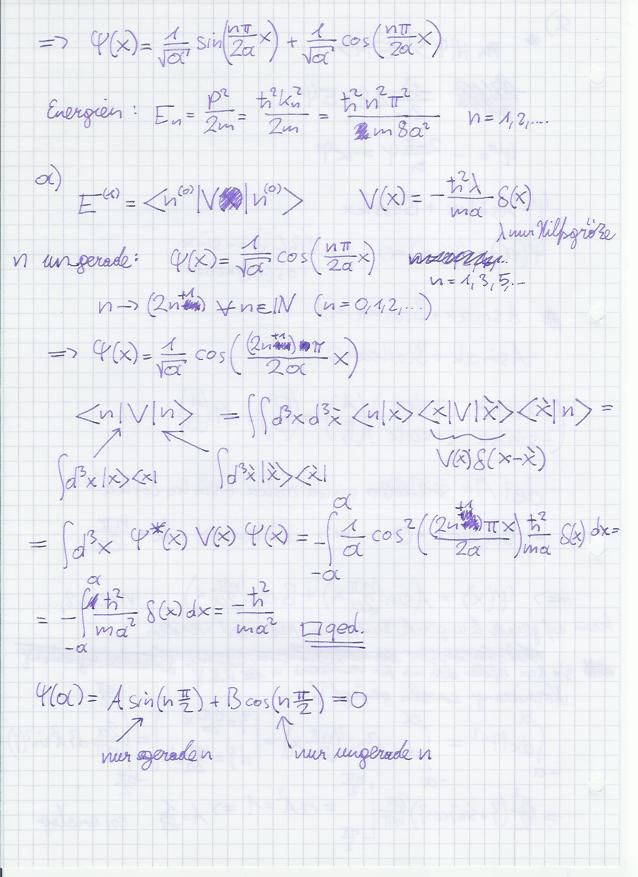 => Ψ(x) = 1/√a sin(nπ/2a x) + 1/√a cos(nπ/2a x)
Energien: Eₙ = p²/2m = ħ²kₙ²/2m = ħ²n²π²/m8a² n = 1,2,...
a) E⁽¹⁾ = <n⁽⁰⁾|V|n⁽⁰⁾> V(x) = -ħ²λ/ma δ(x)
λ nur Hilfsgröße
n ungerade: Ψ(x) = 1/√a cos(nπ/2a x) n = 1,3,5,..
n → (2n+1) ∀ n∈ℕ (n=0,1,2,...)
=> Ψ(x) = 1/√a cos((2n+1)π/2a x)
<n|V|n> = ∫∫d³x d³x̃ <n|x><x|V|x̃><x̃|n> =
∫d³x|x><x| ∫d³x̃|x̃><x̃| V(x)δ(x-x̃)
= ∫d³x Ψ*(x) V(x) Ψ(x) = -∫₋ₐᵃ 1/a cos²((2n+1)πx/2a) ħ²/ma δ(x) dx =
= -∫₋ₐᵃ ħ²/ma² δ(x) dx = -ħ²/ma² □ qed.
Ψ(a) = A sin(n π/2) + B cos(n π/2) = 0
nur gerade n nur ungerade n